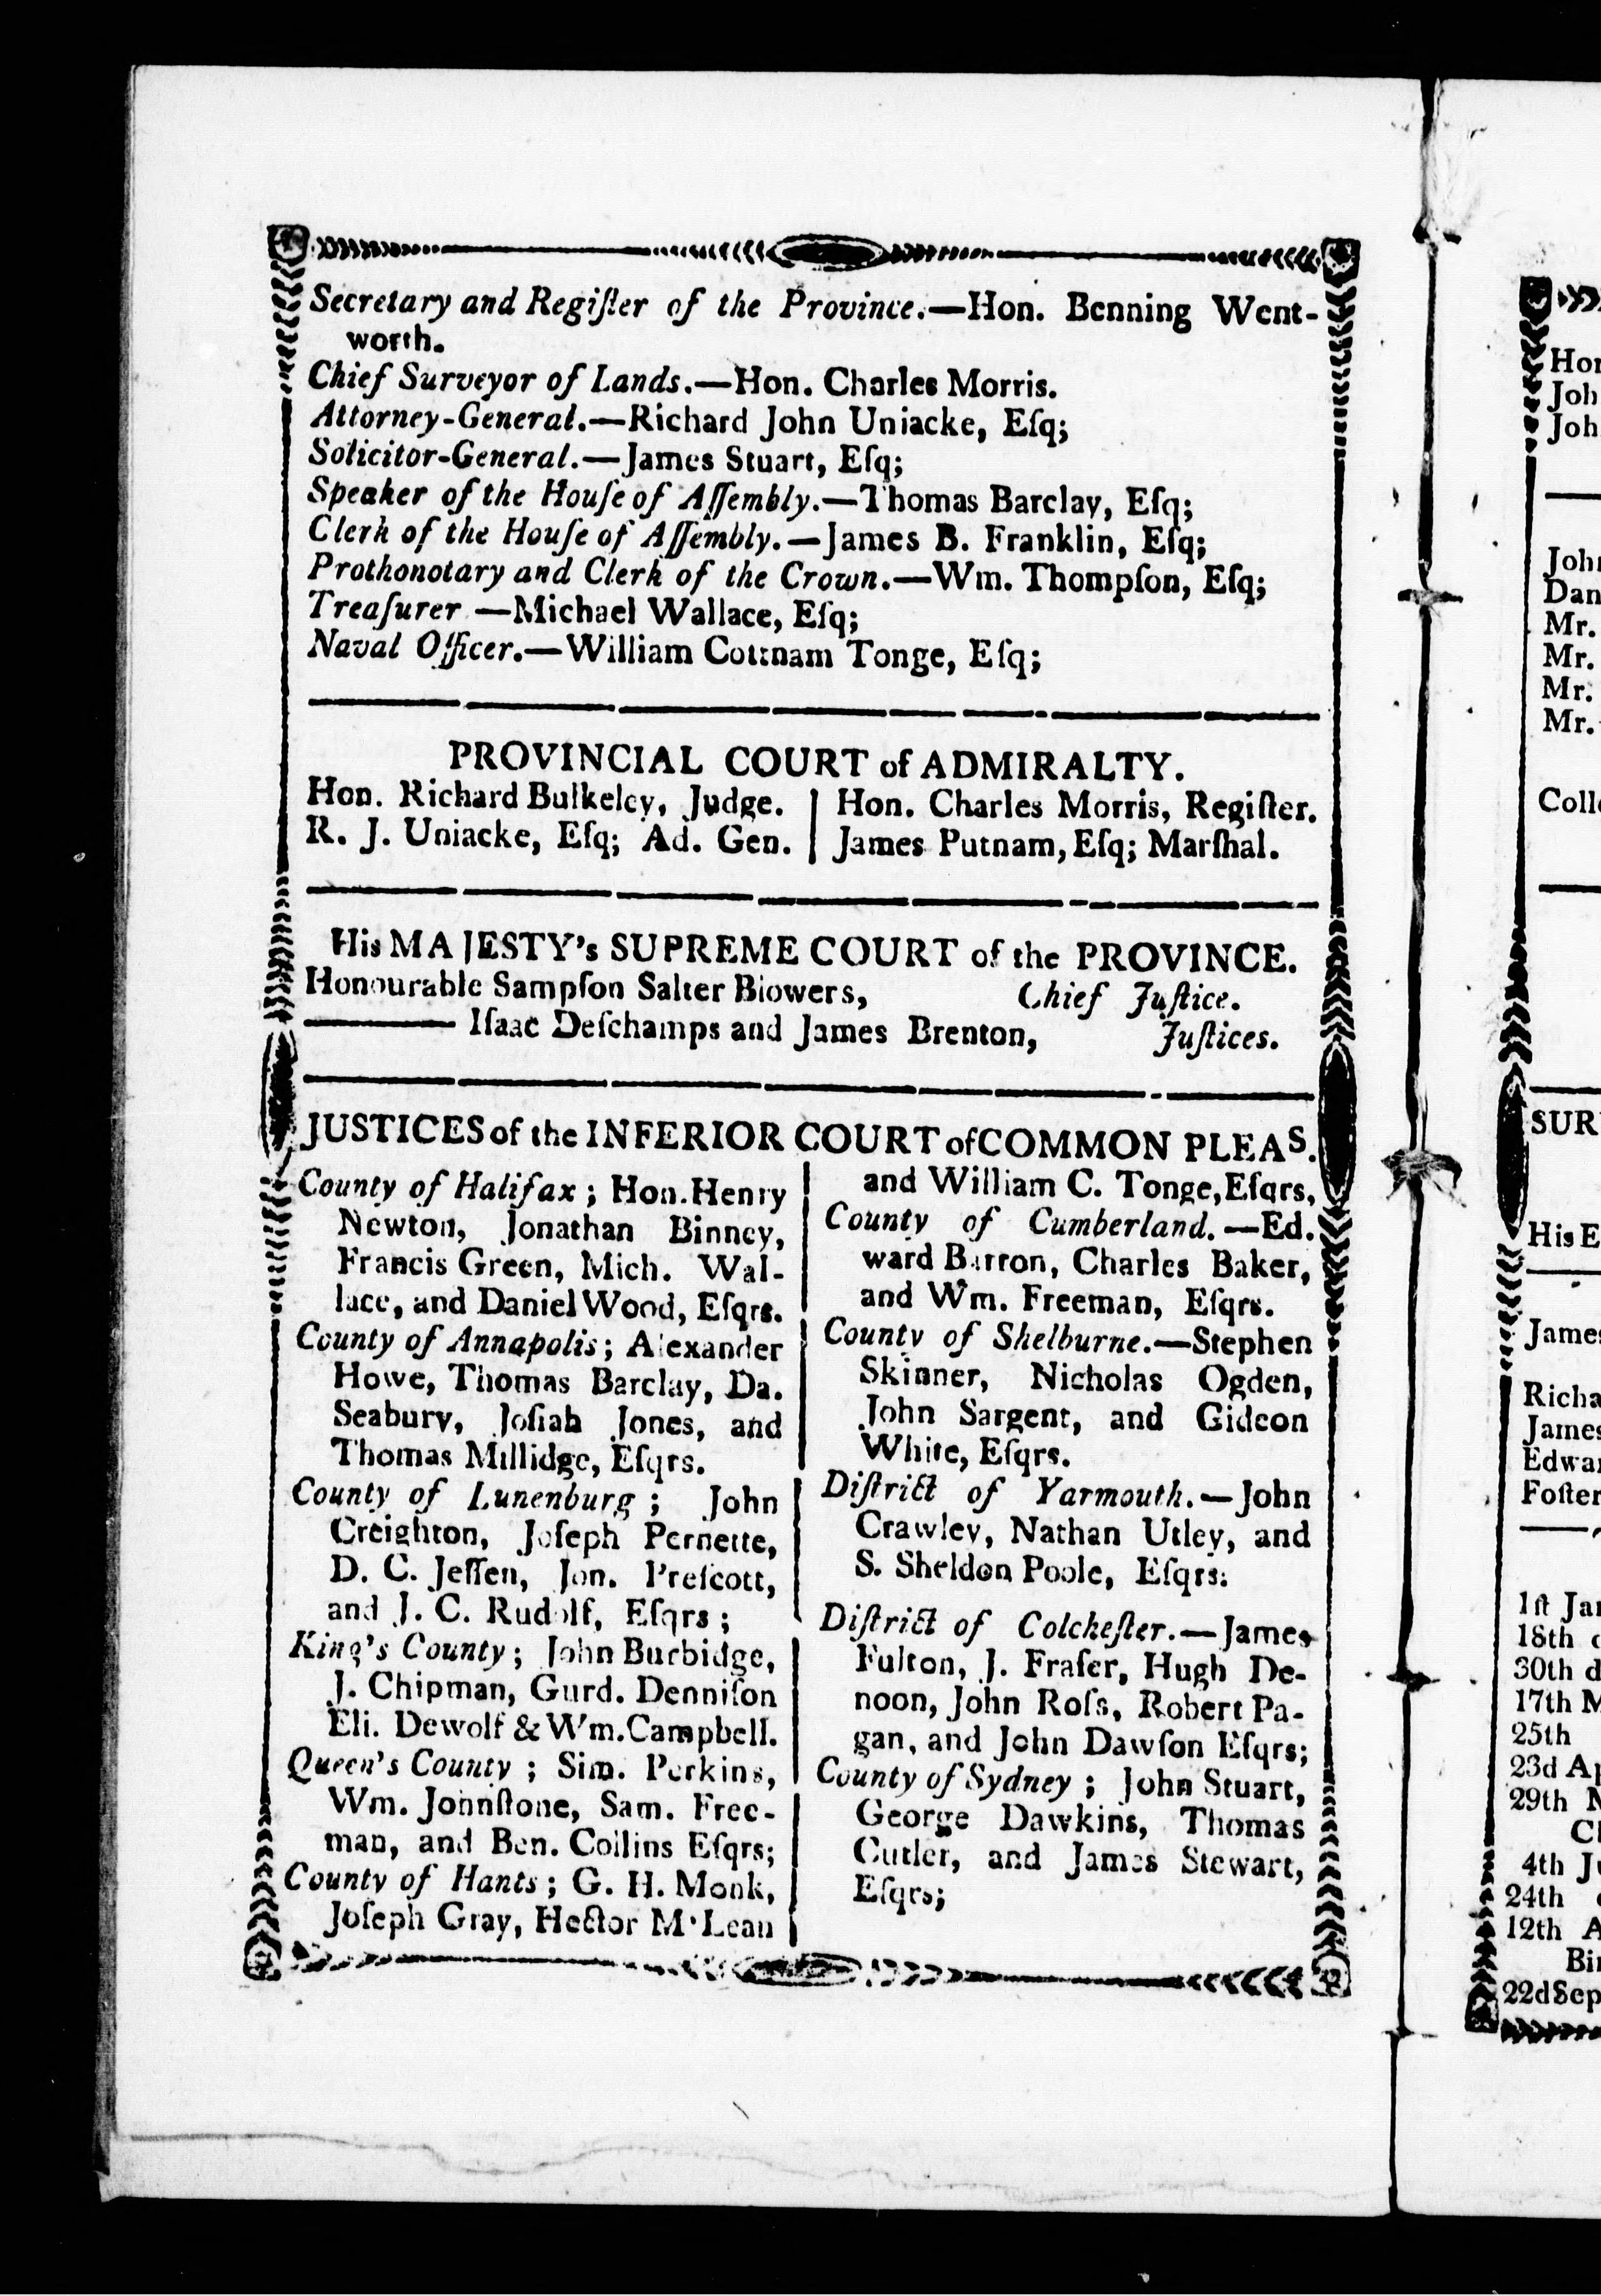 Secretary and Regiſter of the Province.—Hon. Benning Went-
worth.
Chief Surveyor of Lands.—Hon. Charles Morris.
Attorney-General.—Richard John Uniacke, Eſq;
Solicitor-General.—James Stuart, Eſq;
Speaker of the Houſe of Aſſembly.—Thomas Barclay, Eſq;
Clerk of the Houſe of Aſſembly.—James B. Franklin, Eſq;
Prothonotary and Clerk of the Crown.—Wm. Thompſon, Eſq;
Treaſurer —Michael Wallace, Eſq;
Naval Officer.—William Cottnam Tonge, Eſq;
PROVINCIAL COURT of ADMIRALTY.
Hon. Richard Bulkeley, Judge.
R. J. Uniacke, Eſq; Ad. Gen.
Hon. Charles Morris, Regiſter.
James Putnam, Eſq; Marſhal.
His MAJESTY's SUPREME COURT of the PROVINCE.
Honourable Sampſon Salter Blowers, Chief Juſtice.
——— Iſaac Deſchamps and James Brenton, Juſtices.
JUSTICES of the INFERIOR COURT of COMMON PLEAS.
County of Halifax; Hon. Henry
Newton, Jonathan Binney,
Francis Green, Mich. Wal-
lace, and Daniel Wood, Eſqrs.
County of Annapolis; Alexander
Howe, Thomas Barclay, Da.
Seabury, Joſiah Jones, and
Thomas Millidge, Eſqrs.
County of Lunenburg; John
Creighton, Joſeph Pernette,
D. C. Jeſſen, Jon. Preſcott,
and J. C. Rudolf, Eſqrs;
King's County; John Burbidge,
J. Chipman, Gurd. Denniſon
Eli. Dewolf & Wm. Campbell.
Queen's County; Sim. Perkins,
Wm. Johnſtone, Sam. Free-
man, and Ben. Collins Eſqrs;
County of Hants; G. H. Monk,
Joſeph Gray, Hector M'Lean
and William C. Tonge, Eſqrs,
County of Cumberland.—Ed.
ward Barron, Charles Baker,
and Wm. Freeman, Eſqrs.
County of Shelburne.—Stephen
Skinner, Nicholas Ogden,
John Sargent, and Gideon
White, Eſqrs.
Diſtrict of Yarmouth.—John
Crawley, Nathan Utley, and
S. Sheldon Poole, Eſqrs.
Diſtrict of Colcheſter.—James
Fulton, J. Fraſer, Hugh De-
noon, John Roſs, Robert Pa-
gan, and John Dawſon Eſqrs;
County of Sydney; John Stuart,
George Dawkins, Thomas
Cutler, and James Stewart,
Eſqrs;
Joh
Joh
John
Dan
Mr.
Mr.
Mr.
Mr.
Coll
SUR
His E
James
Richa
James
Edwa
Foſter
1ſt Jan
18th
30th d
17th M
25th
23d Ap
29th
4th Ju
24th
12th A
Bir
22d Sep